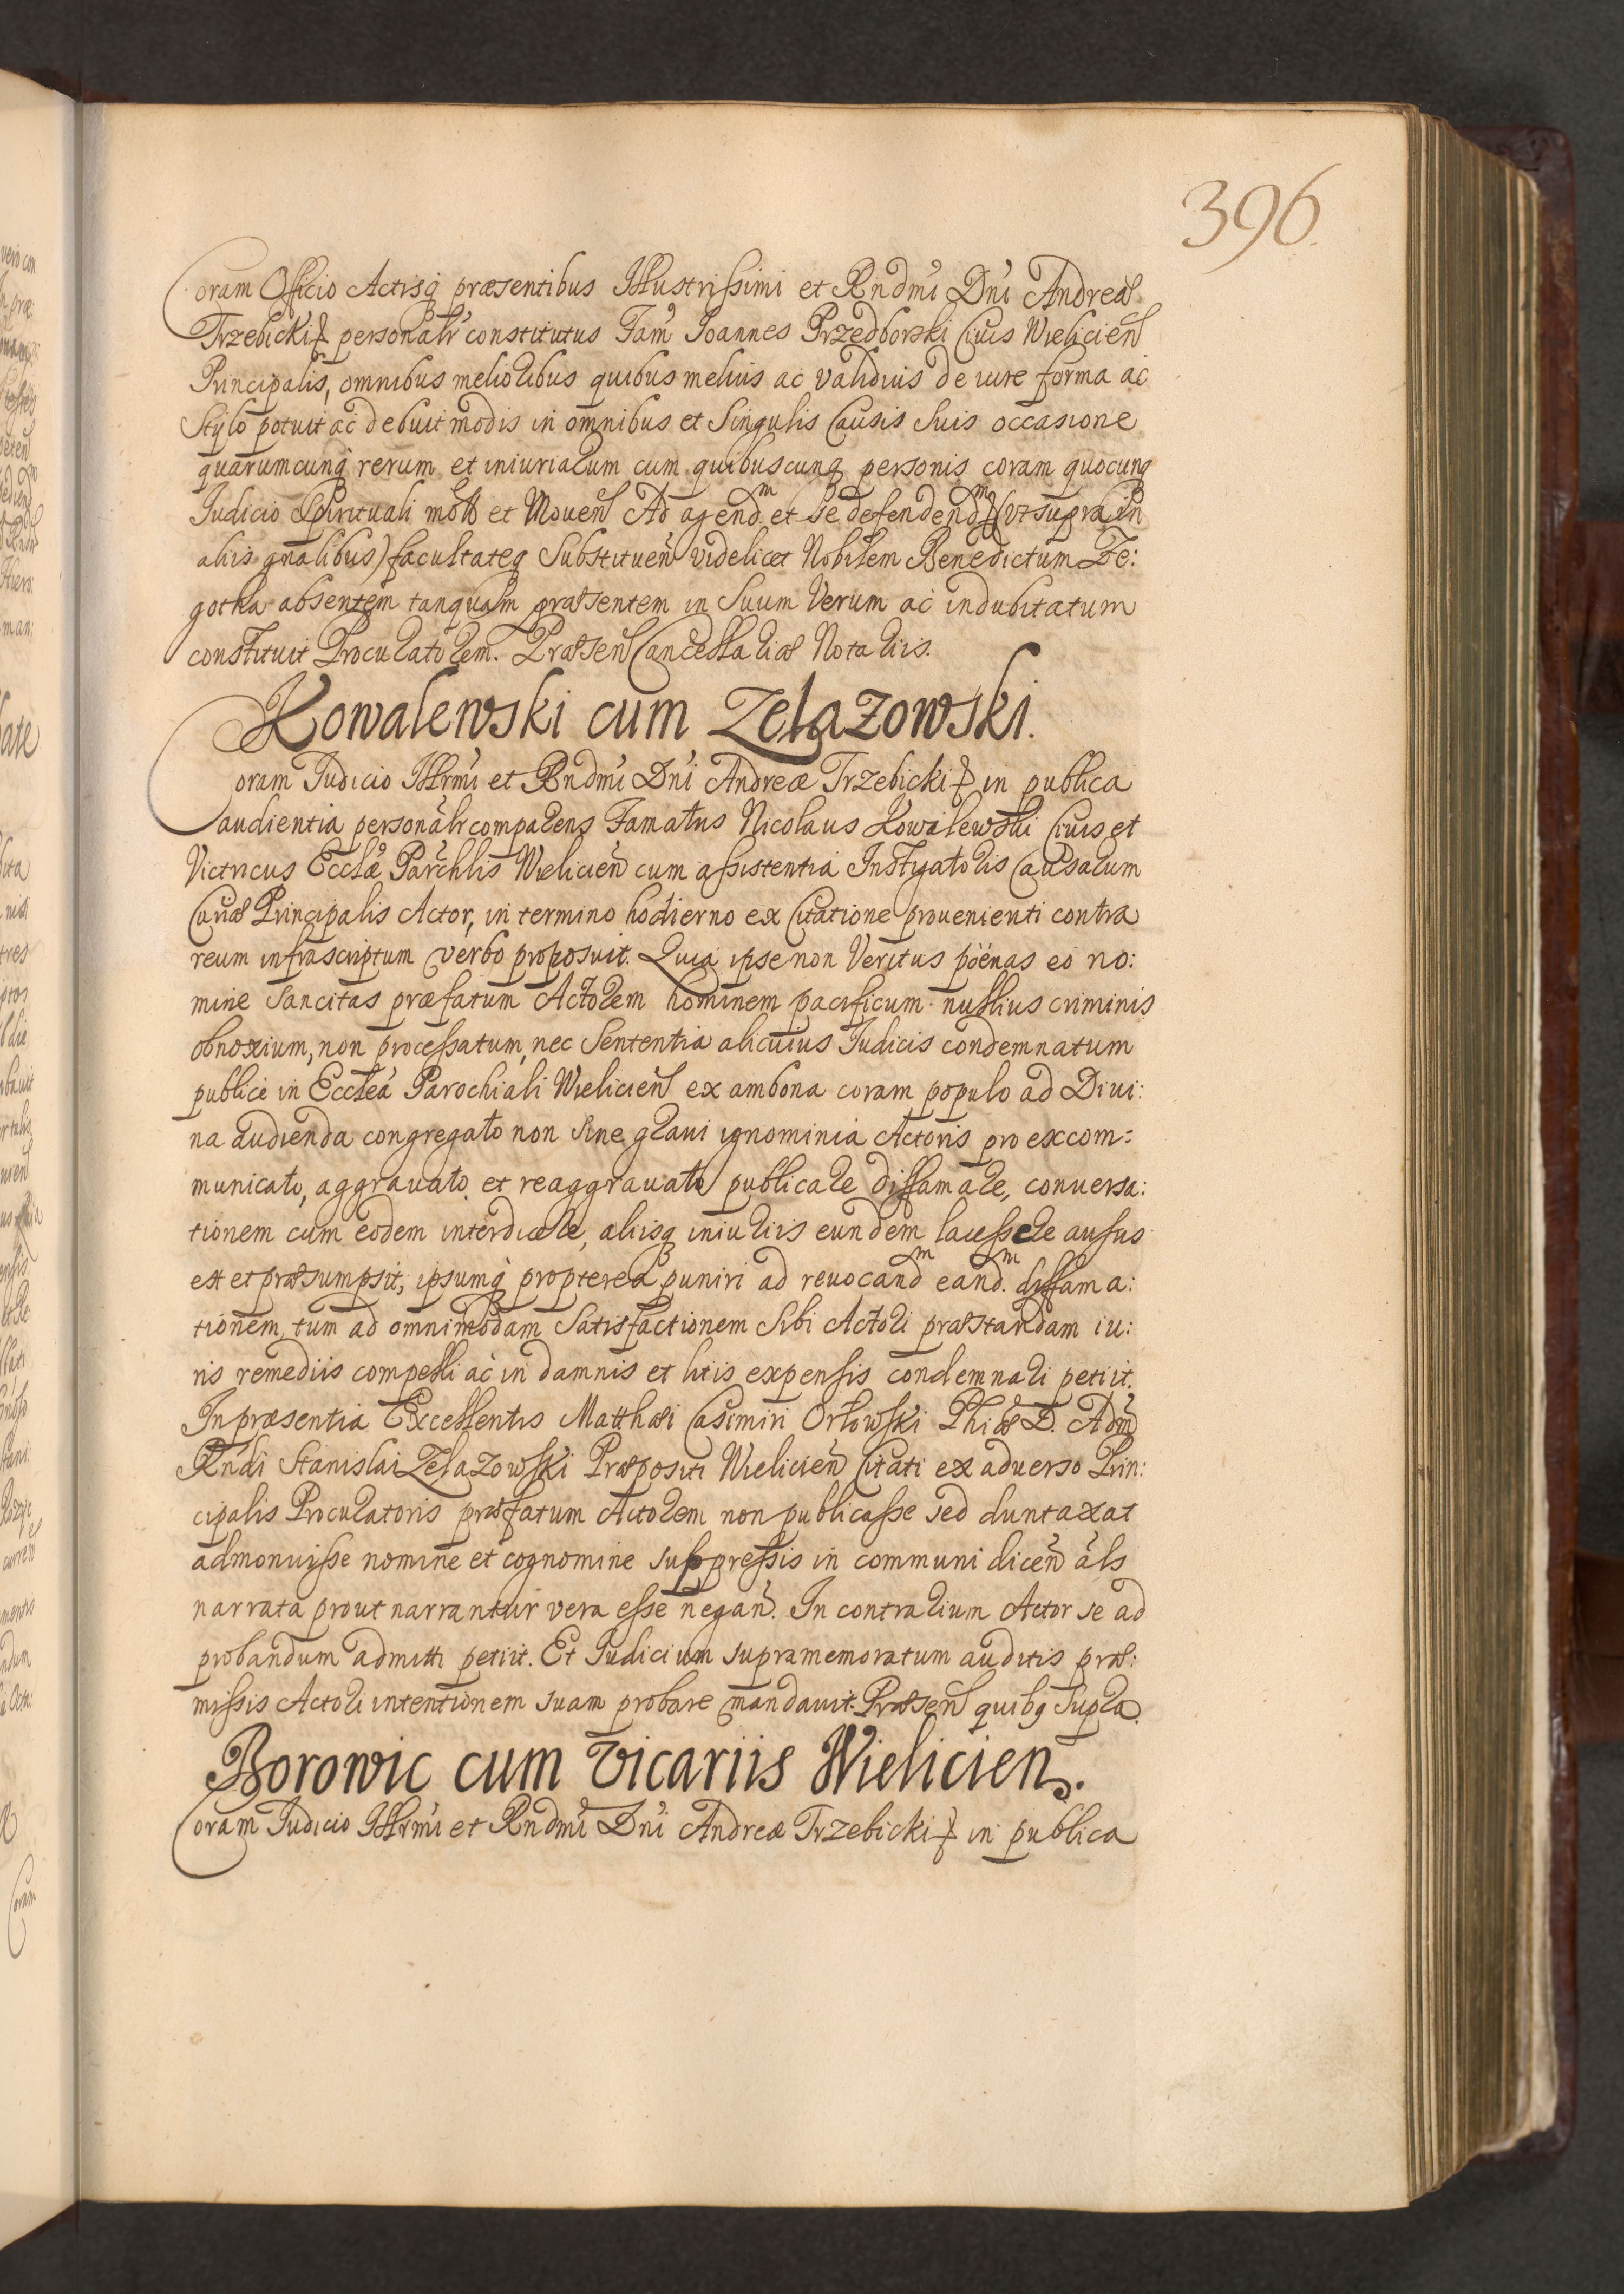 396.
Coram Officio Actisq præsentibus Illustrissimi et Rndmi Dni Andreæ
Trzebicki personalr constitutus Fam Ioannes Przedborski Ciuis Wielicien
Principalis, omnibus melioribus quibus melius ac validius de iure forma ac
Stylo potuit ac debuit modis in omnibus et Singulis Causis Suis occasione
quarumcunq rerum et iniuriarum cum quibuscunq personis coram quocunq
Iudicio Spirituali motis et Mouen Ad agend.m et Se defendend.m (vt supra in
aliis gnalibus) facultateq Substituen videlicet Nobilem Benedictum Ze:
gotka absentem tanquam præsentem in Suum Verum ac indubitatum
constituit Procuratorem. Præsen Cancellariæ Notariis.
Kowalewski cum Zelazowski.
Coram Iudicio Illrmi et Rndmi Dni Andreæ Trzebicki in publica
audientia personalr comparens Famatus Nicolaus Kowalewski Ciuis et
Victricus Ecclæ Parchlis Wielicien cum assistentia Instigatoris Causarum
Curiæ Principalis Actor, in termino hodierno ex Citatione prouenienti contra
reum infrascriptum verbo proposuit. Quia ipse non Veritus poenas eo no:
mine Sancitas præfatum Actorem hominem pacificum nullius criminis
obnoxium, non processatum, nec Sententia alicuius Iudicis condemnatum
publice in Ecclea Parochiali Wielicien ex ambona coram populo ad Diui:
na audienda congregato non Sine graui ignominia Actoris pro excom:
municato, aggrauato et reaggrauato publicare diffamare, conuersa:
tionem cum eodem interdicere, aliisq iniuriis eundem lacessere ausus
est et præsumpsit, ipsumq propterea puniri ad reuocand.m eand.m diffama:
tionem, tum ad omnimodam Satisfactionem Sibi Actori præstandam iu:
ris remediis compelli ac in damnis et litis expensis condemnari petiit.
In præsentia Excellentis Matthæi Casimiri Orłowski Phiæ D. Adm
Rndi Stanislai Zelazowski Præpositi Wielicien Citati ex aduerso Prin:
cipalis Procuratoris præfatum Actorem non publicasse sed duntaxat
admonuisse nomine et cognomine suppressis in communi dicen als
narrata prout narrantur vera esse negan. In contrarium Actor se ad
probandum admitti petiit. Et Iudicium supramemoratum auditis præ:
missis Actori intentionem suam probare mandauit. Præsen quibq Supra.
Borowic cum Vicariis Wielicien.
Coram Iudicio Illrmi et Rndmi Dni Andreæ Trzebicki in publica